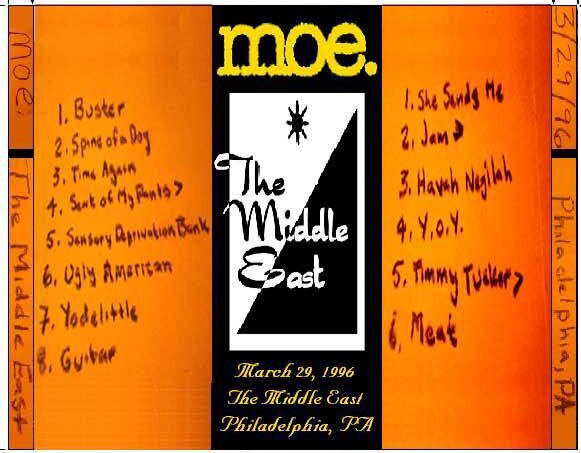 moe.
The Middle East
1. Buster
2. Spine of a Dog
3. Time Again
4. Seat of My Pants >
5. Sensory Deprivation Bank
6. Ugly American
7. Yodelittle
8. Guitar
moe.
The
Middle
East
March 29, 1996
The Middle East
Philadelphia, PA
1. She Sends Me
2. Jam >
3. Havah Nagilah
4. Y.O.Y.
5. Timmy Tucker >
6. Meat
3/29/96
Philadelphia, PA